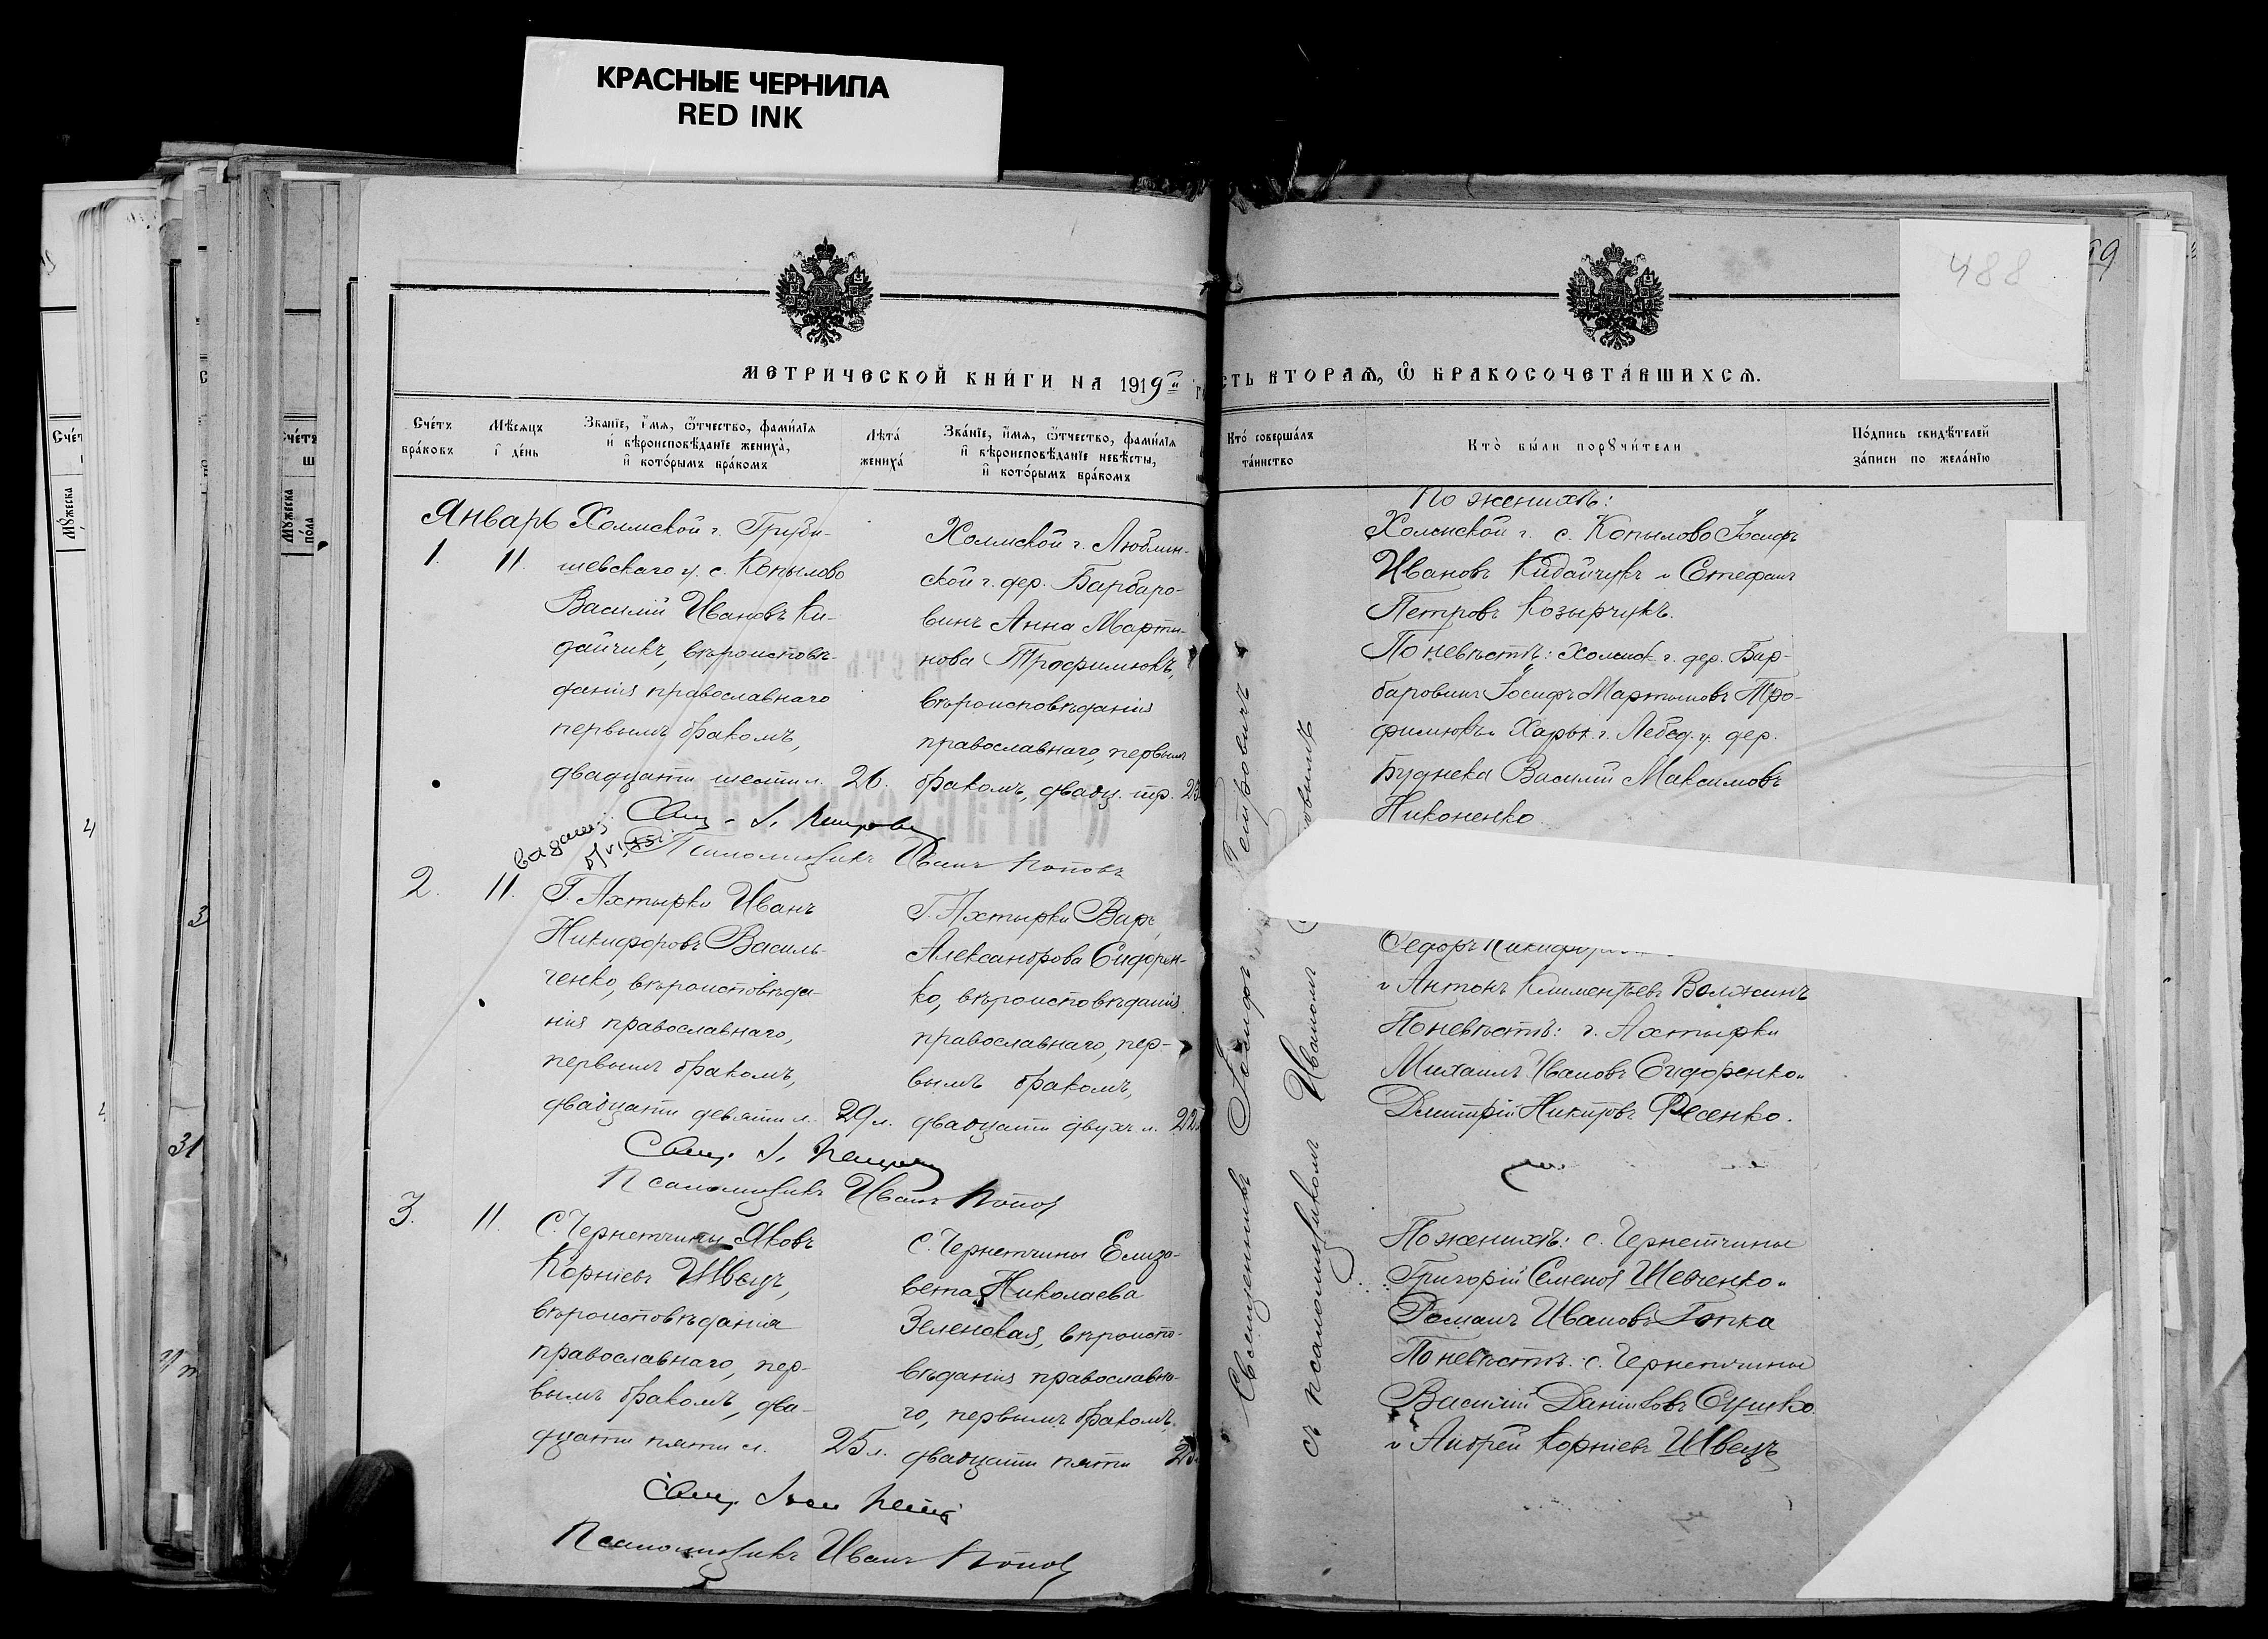 КРАСНЫЕ ЧЕРНИЛА
RED INK
488
МЕТРИЧЕСКОЙ КНИ́ГИ НА 1919
СТЬ ВТОРАѦ, Ѿ БРАКОСОЧЕТА́ВШИХСѦ.
Сче́тъ бра́ковъ
Мѣсяцъ і де́нь
Зва́ніе, и҆мя, ѻ҆́тчество, фами́лія и҆ вѣроисповѣ́даніе жениха̀, и҆ кото́рымъ бра́комъ
Лѣта́ жениха́
Зва́ніе, и҆мя, ѻ҆́тчество, фами́лія и҆ вѣроисповѣ́даніе невѣ́сты, и҆ кото́рымъ бра́комъ
Кто́ соверша́лъ та́инство
Кто̀ бы́ли порꙋчи́тели
По́дпись свидѣ́телей за́писи по жела́нію
Январь
1. 11.
Холмской г. Груби-
шевскаго у. с. Копылово
Василій Ивановъ Ки-
дайчикъ, вѣроисповѣ-
данія православнаго
первымъ бракомъ,
двадцати шести л. 26.
Холмской г. Люблин-
ской г. дер. Барбаро-
винъ Анна Марти-
нова Трофимюкъ,
вѣроисповѣданія
православнаго, первымъ
бракомъ, двадц. тр. 23
Свящ. І. Петровъ
Псаломщикъ Иванъ Поповъ
По женихѣ:
Холмской г. с. Копылово Іосифъ
Ивановъ Кидайчукъ и Стефанъ
Петровъ Козырчукъ.
По невѣстѣ: Холмск. г. дер. Бар-
баровинъ Іосифъ Мартыновъ Тро-
фимюкъ и Харьк. г. Лебед. у. дер.
Буднека Василій Максимовъ
Никоненко.
2. 11.
Г. Ахтырки Иванъ
Никифоровъ Василь-
ченко, вѣроисповѣда-
нія православнаго,
первымъ бракомъ,
двадцати девяти л. 29 л.
Г. Ахтырки Вар.
Александрова Сидорен-
ко, вѣроисповѣданія
православнаго, пер-
вымъ бракомъ,
двадцати двухъ л. 22
Свящ. І. Петровъ
Псаломщикъ Иванъ Поповъ
Федоръ
и Антонъ Климентьевъ Волжинъ
По невѣстѣ: г. Ахтырки
Михаилъ Ивановъ Сидоренко и
Димитрій Никитовъ Фесенко.
3. 11.
С. Чернетчины Яковъ
Корніевъ Швецъ,
вѣроисповѣданія
православнаго, пер-
вымъ бракомъ, два-
дцати пяти л. 25 л.
С. Чернетчины Елиза-
вета Николаева
Зеленская, вѣроиспо-
вѣданія православна-
го, первымъ бракомъ,
двадцати пяти 25
Свящ. Іоан Петров
Псаломщикъ Иванъ Попов
По женихѣ: с. Чернетчины
Григорій Семенов Шевченко и
Романъ Ивановъ Гопка
По невѣстѣ: с. Чернетчины
Василій Даниловъ Сушко
и Андрей Корніевъ Швецъ
Священникъ Іосифъ Петровичъ
съ псаломщикомъ Иваномъ